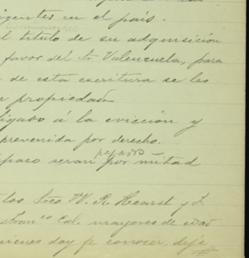 igentes en el país.
el título de su adquisición
favor del Sr. Valenzuela, para
de esta escritura se les
propiedad
ligado á la evicción y
prevenida por derecho.
pagado
seran por mitad
los Srs W. R. Hearst y
Franco Cal. mayores de edad
quienes doy fe conocer, deje